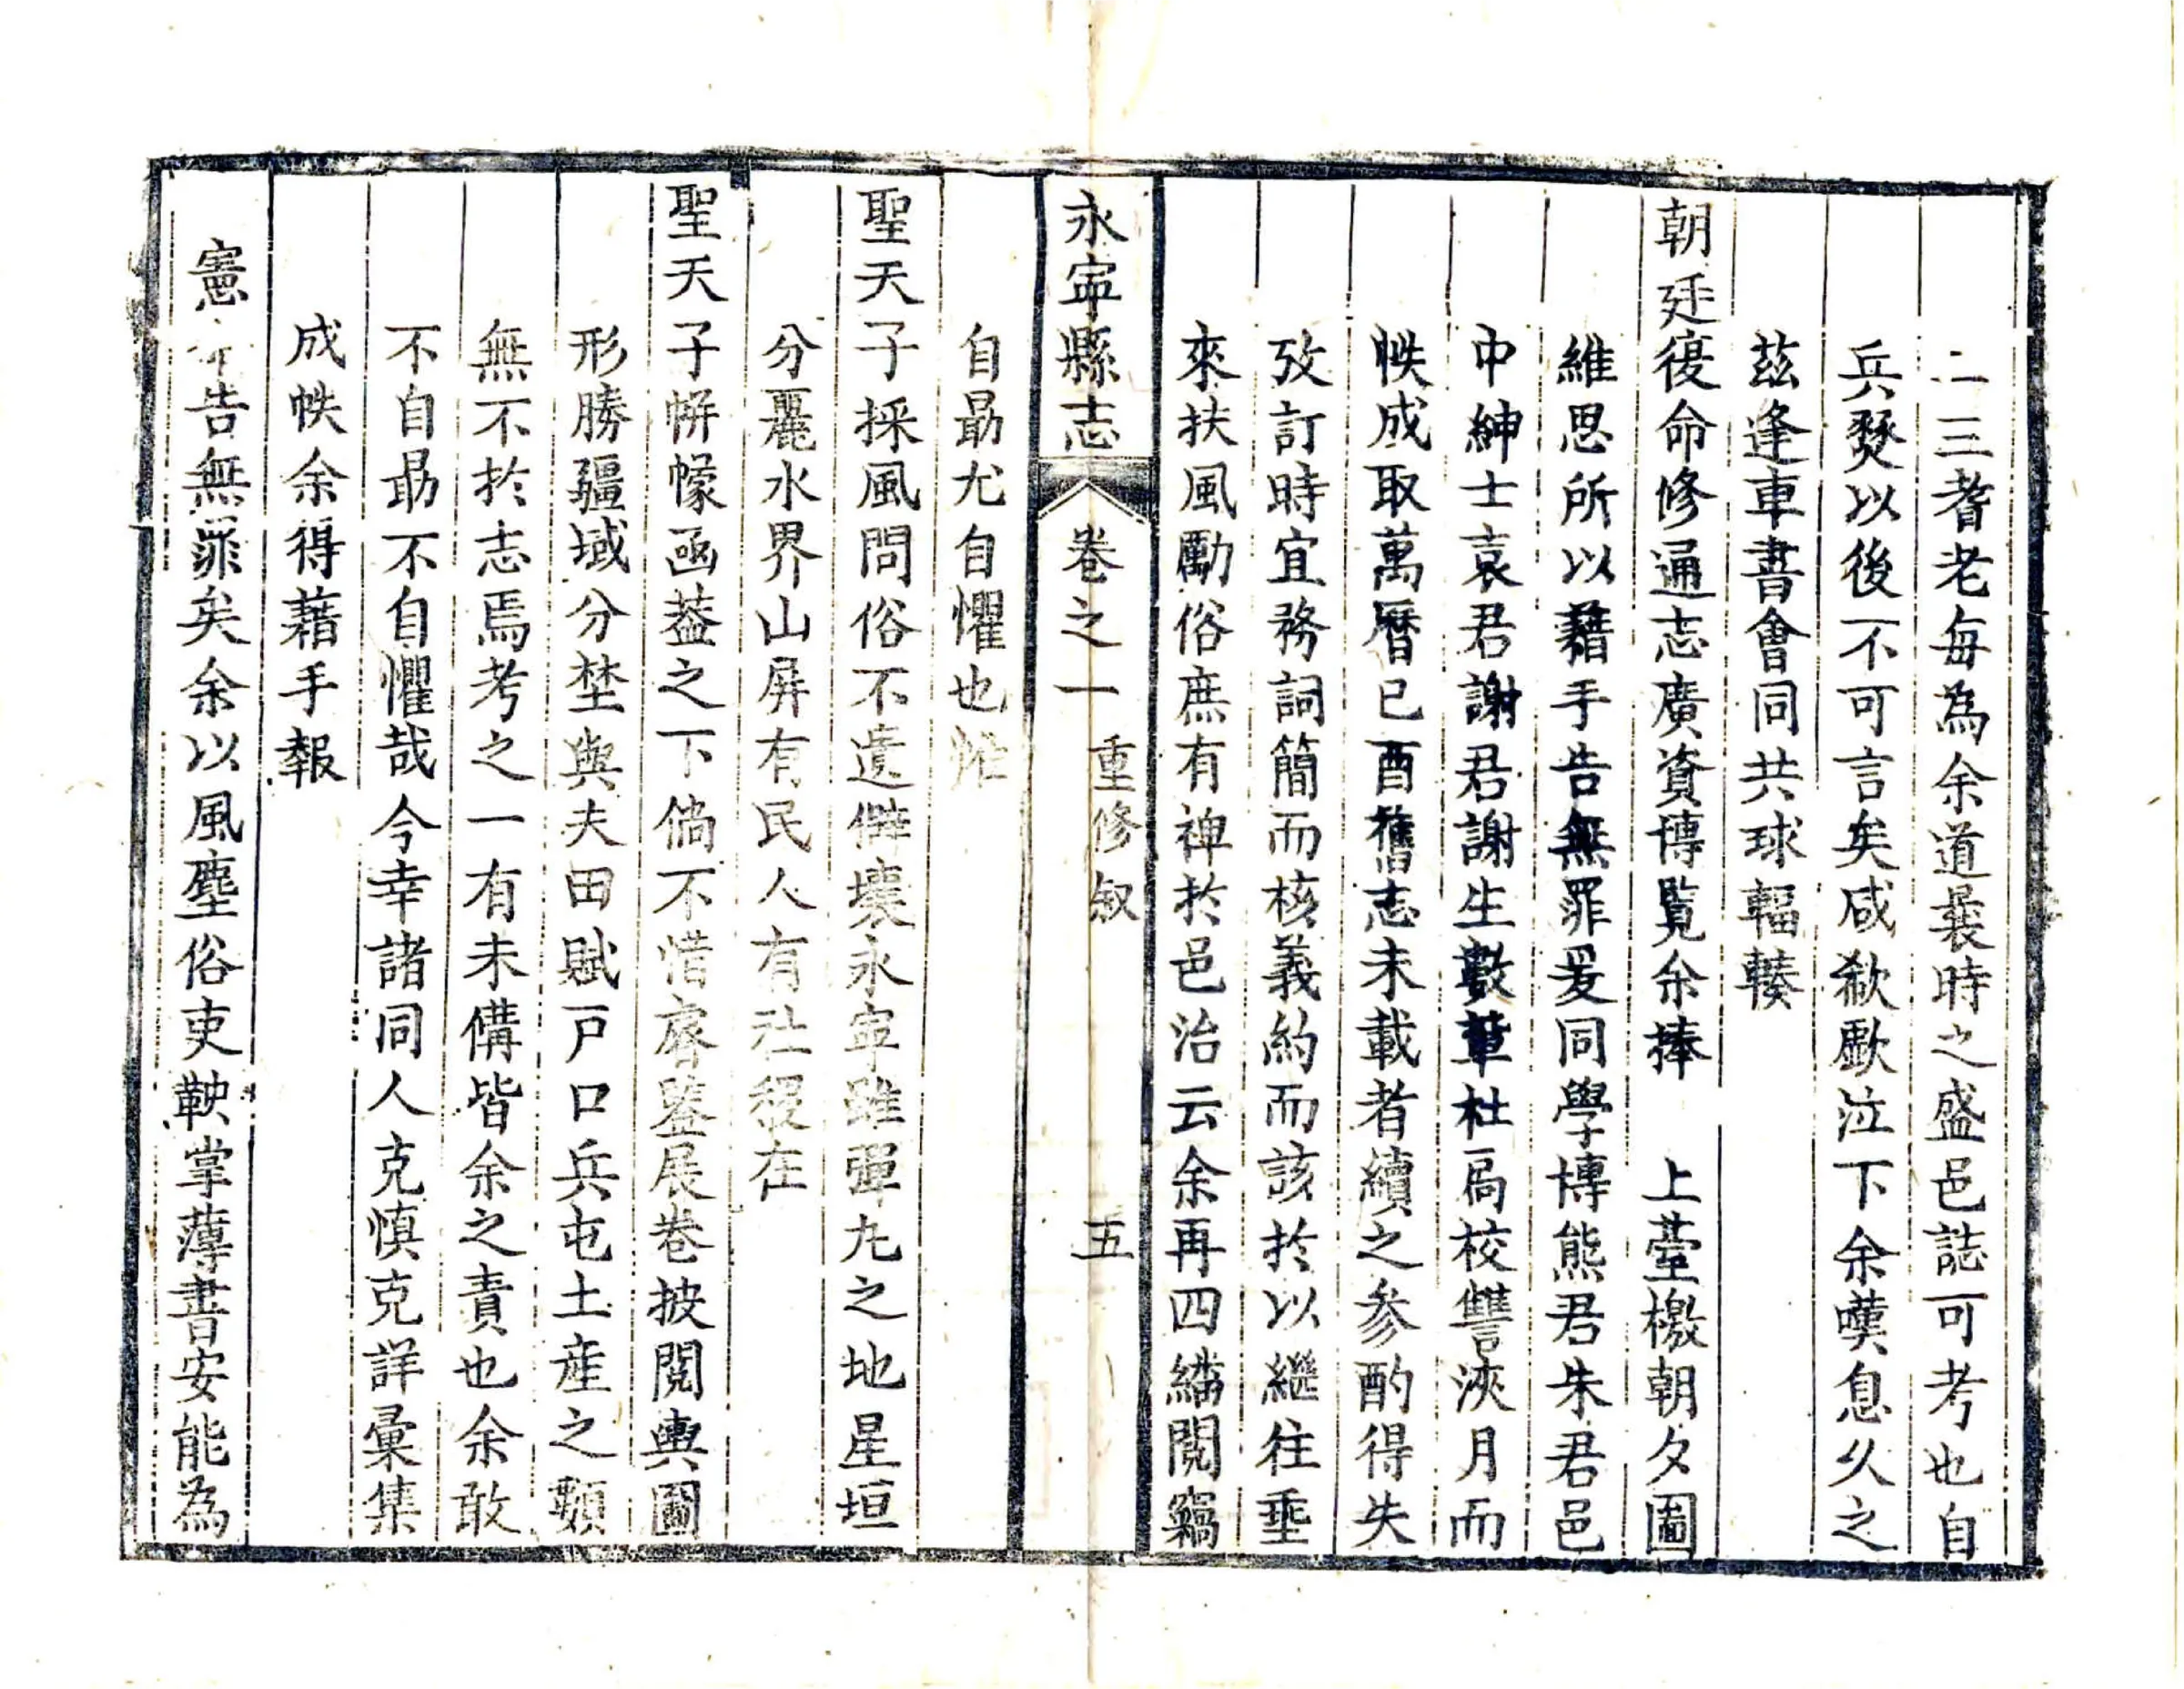 二三耆老每為余道曩時之盛邑誌可考也自
兵燹以後不可言矣咸欷歔泣下余嘆息久之
茲逢車書會同共球輻輳
朝廷復命修通志廣資博覧余捧 上䑓檄朝夕圖
維思所以藉手告無罪爰同學博熊君朱君邑
中紳士袁君謝君謝生數輩杜扃校讐浹月而
帙成取萬曆己酉舊志未載者續之參酌得失
攷訂時宜務詞簡而核義約而該於以繼往垂
來扶風勵俗庶有裨於邑治云余再四繙閱竊
永寧縣志 卷之一 重修叙 五
自勗尤自懼也惟
聖天子採風問俗不遺僻壤永寧雖彈丸之地星垣
分麗水界山屏有民人有社稷在
聖天子帡幪函蓋之下倘不惜睿鑒展卷披閱輿圖
形勝疆域分埜與夫田賦戶口兵屯土産之類
無不於志焉考之一有未備皆余之責也余敢
不自勗不自懼哉今幸諸同人克慎克詳彙集
成帙余得藉手報
憲 告無罪矣余以風塵俗吏鞅掌薄書安能為